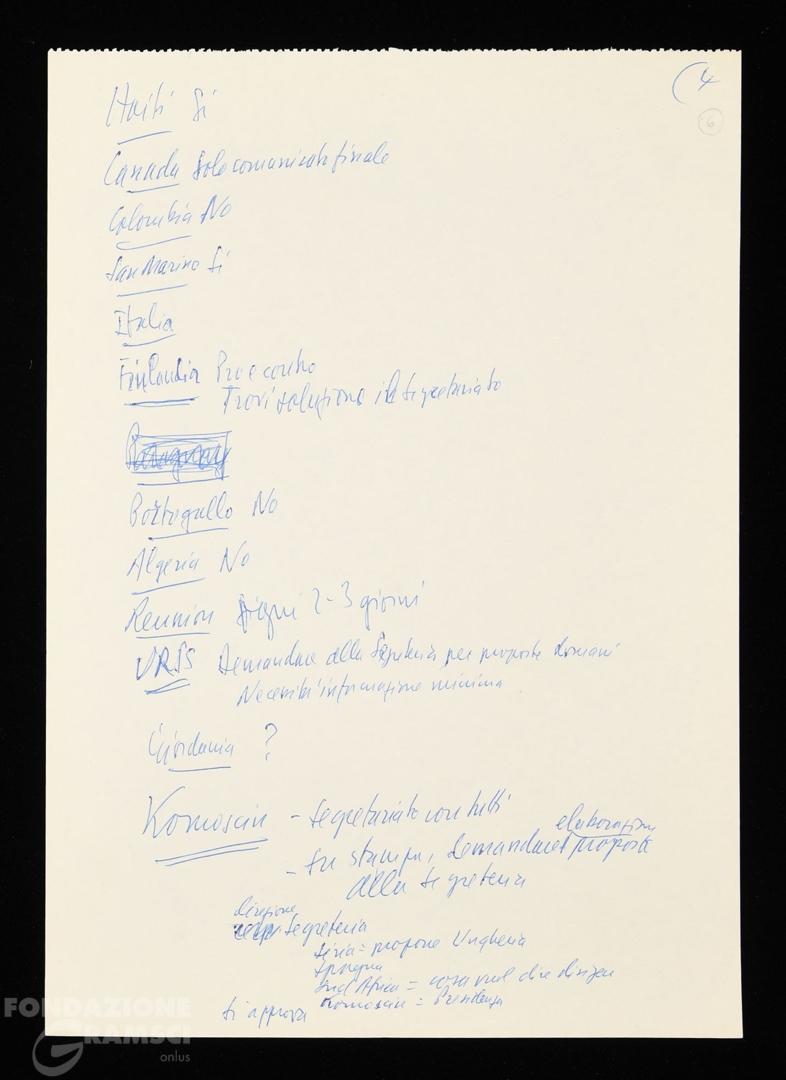 (4
6
Haiti Si
Canada Solo comunicato finale
Colombia No
San Marino Si
Italia
Finlandia Pro e contro
Trovi soluzione il Segretariato
Paraguay
Portogallo No
Algeria No
Reunion Ogni 2-3 giorni
URSS Demandare alla Segreteria per proposte domani
Necessità informazione minima
Giordania ?
Komoscin - Segretariato con tutti
elaborazione
- Su stampa, demandare proposte
alla segreteria
direzione
Segreteria
Siria = propone Ungheria
Spagna
Sud Africa = cosa vuol dire
Komoscin = Presidenza
Si approva
FONDAZIONE
GRAMSCI
onlus